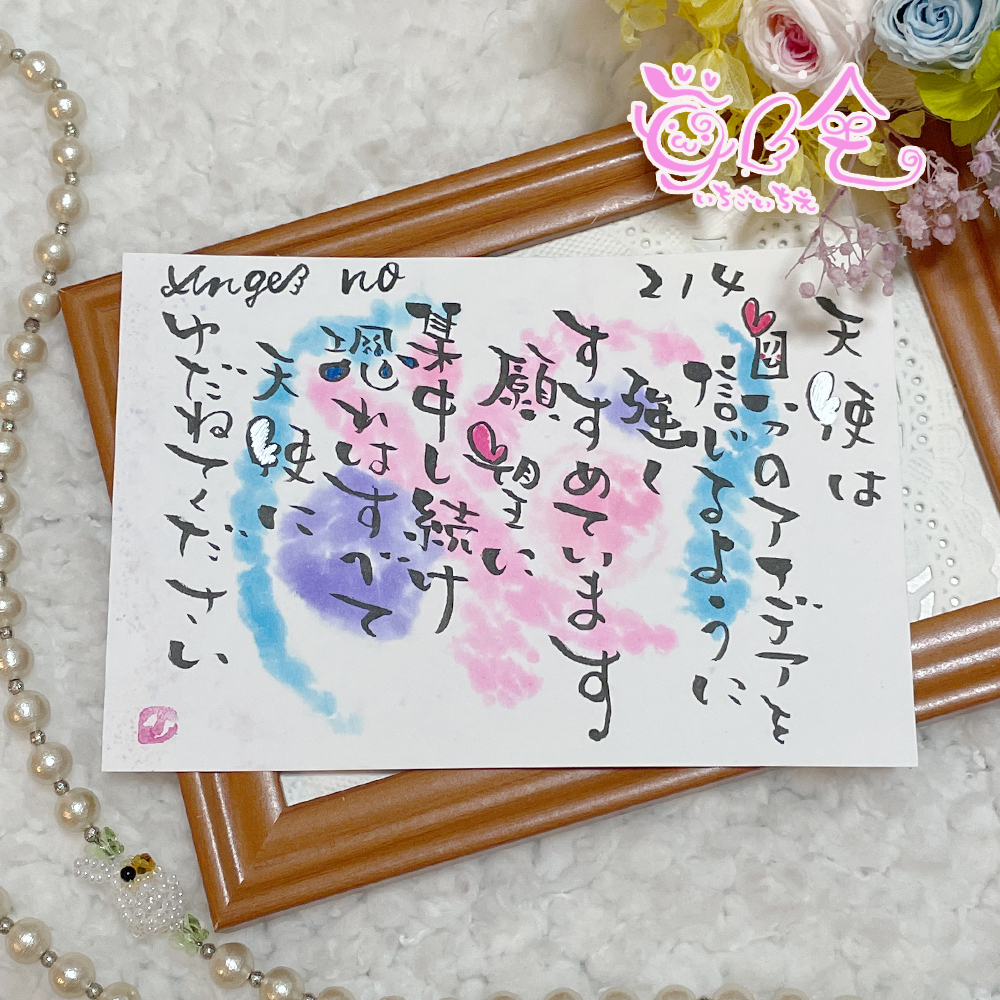 いちごいちえ
Angel no 214
天使は
自分のアイデアを
信じるように
強く
すすめています
願望に
集中し続け
恐れはすべて
天使に
ゆだねてください